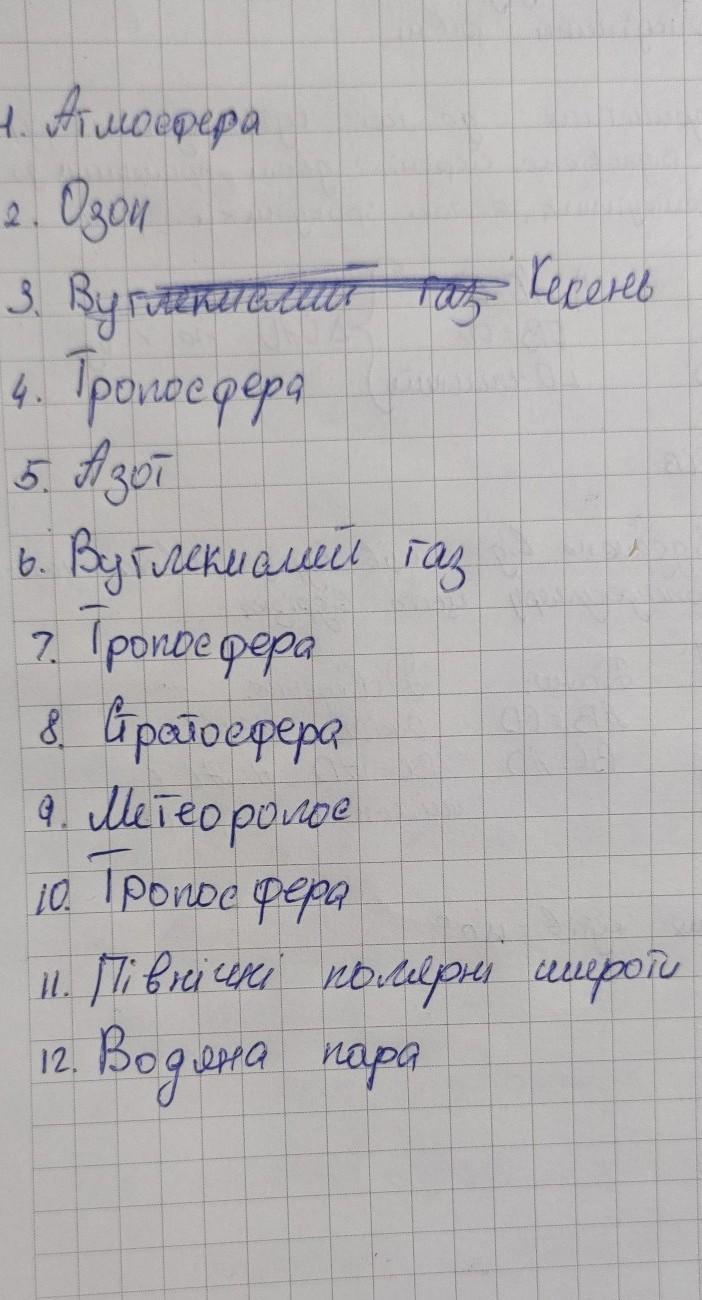 1. Атмосфера
2. Озон
3. Вуглекислий газ Кисень
4. Тропосфера
5. Азот
6. Вуглекислий газ
7. Тропосфера
8. Стратосфера
9. Метеоролог
10. Тропосфера
11. Північні полярні широти
12. Водяна пара